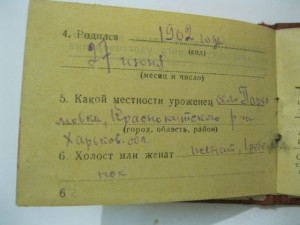 4. Родился 1902 года
(год)
27 июня
(месяц и число)
5. Какой местности уроженец
Краснокутского р-на
(город, область, район)
Харьков. обл.
6. Холост или женат женат, 1 ребе
нок
6